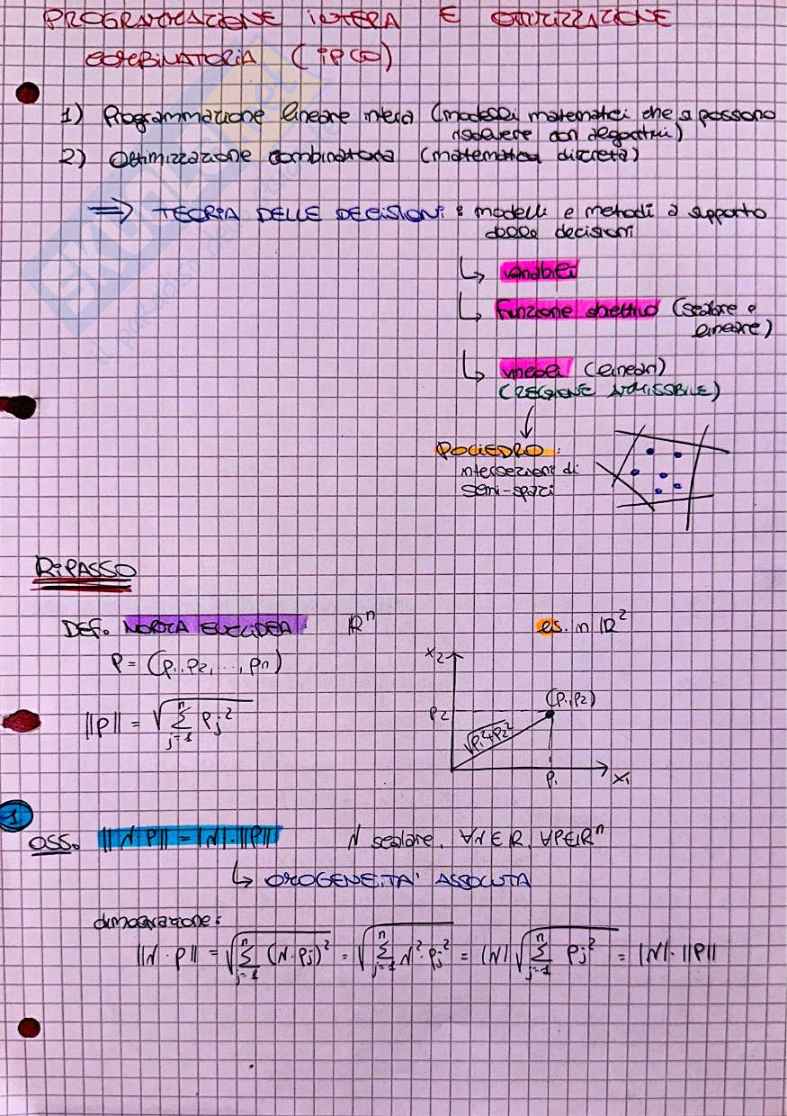 PROGRAMMAZIONE INTERA E OTTIMIZZAZIONE
COMBINATORIA (IPCO)
1) Programmazione lineare intera (modelli matematici che si possono
risolvere con algoritmi)
2) Ottimizzazione combinatoria (matematica discreta)
⇒ TEORIA DELLE DECISIONI: modelli e metodi a supporto
delle decisioni
↳ variabili
↳ funzione obiettivo (scalare e
lineare)
↳ vincoli (lineari)
(REGIONE AMMISSIBILE)
POLIEDRO:
intersezione di
semi-spazi
RIPASSO
DEF. NORMA EUCLIDEA: ℝⁿ
es. in ℝ²
P = (p₁, p₂, ..., pn)
x₂
(p₁, p₂)
||p|| = √(∑_{j=1}^{n} pj²)
p₂
√(p₁²+p₂²)
p₁
x₁
1
OSS. ||λ·P|| = |λ|·||P|| λ scalare, ∀λ∈ℝ, ∀P∈ℝⁿ
↳ OMOGENEITA' ASSOLUTA
dimostrazione:
||λ·p|| = √(∑_{j=1}^{n} (λ·pj)²) = √(∑_{j=1}^{n} λ²·pj²) = |λ| √(∑_{j=1}^{n} pj²) = |λ|·||P||